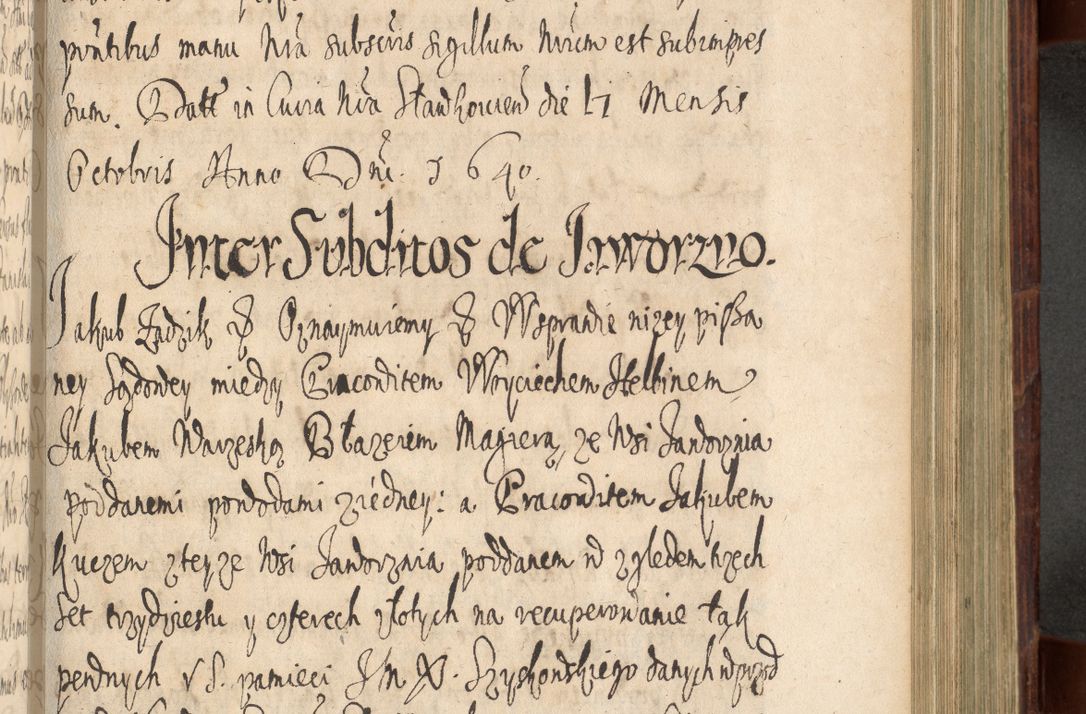 pñtibus manu Nrã subscris sigillum Nrũm est subimpres
sum. Datt in Curia Nrã Stawkowien die 17 Mensis
Octobris Anno Dni. 1640.
Inter Subditos de Jaworzno.
Jakub Zadzik & Oznaymuiemy & W sprawie nizey pissa
ney Sądowey miedzy Pracowitem Woyciechem Helbinem
Jakubem Warzeską Błazeiem Magierą, ze Wsi Jaworznia
poddanemi powodami z iedney: a Pracowitem Jakubem
Kuczem z teyze Wsi Jaworznia poddanem w zgledem trzech
set trzydziestu y czterech złotych na recuperowanie tąk
pewnych S. pamieci J M X. Szyszkowskiego danych wprzod